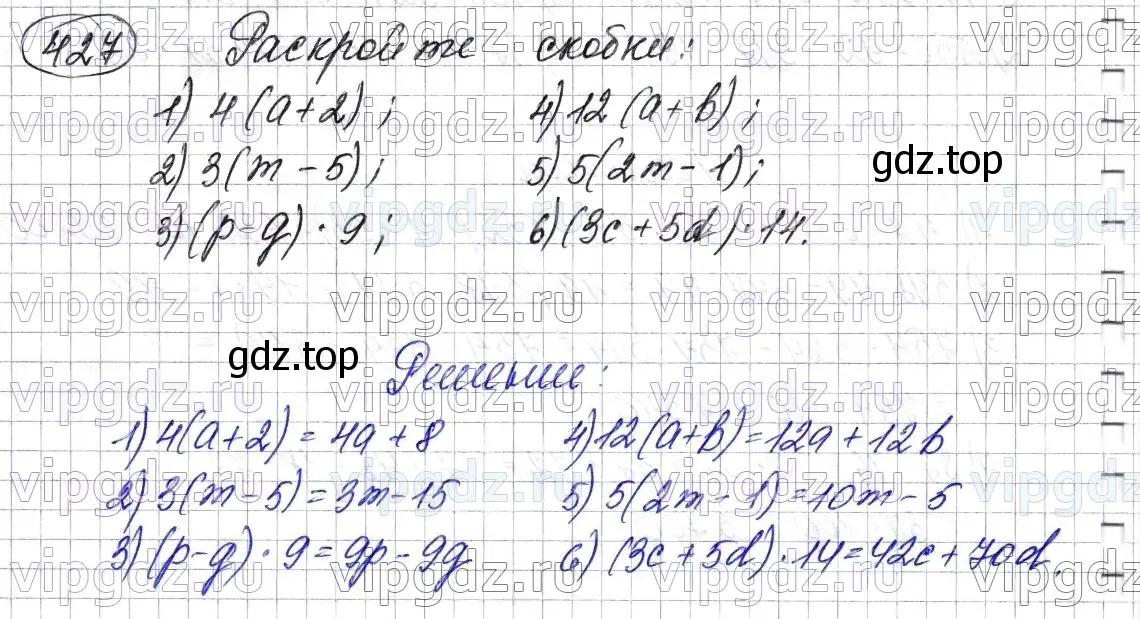 427 Раскройте скобки:
1) 4(a+2); 4) 12(a+b);
2) 3(m-5); 5) 5(2m-1);
3) (p-g)·9; 6) (3c+5d)·14.
Решение:
1) 4(a+2)=4a+8 4) 12(a+b)=12a+12b
2) 3(m-5)=3m-15 5) 5(2m-1)=10m-5
3) (p-g)·9=9p-9g 6) (3c+5d)·14=42c+70d.
gdz.top
gdz.top
vipgdz.ru